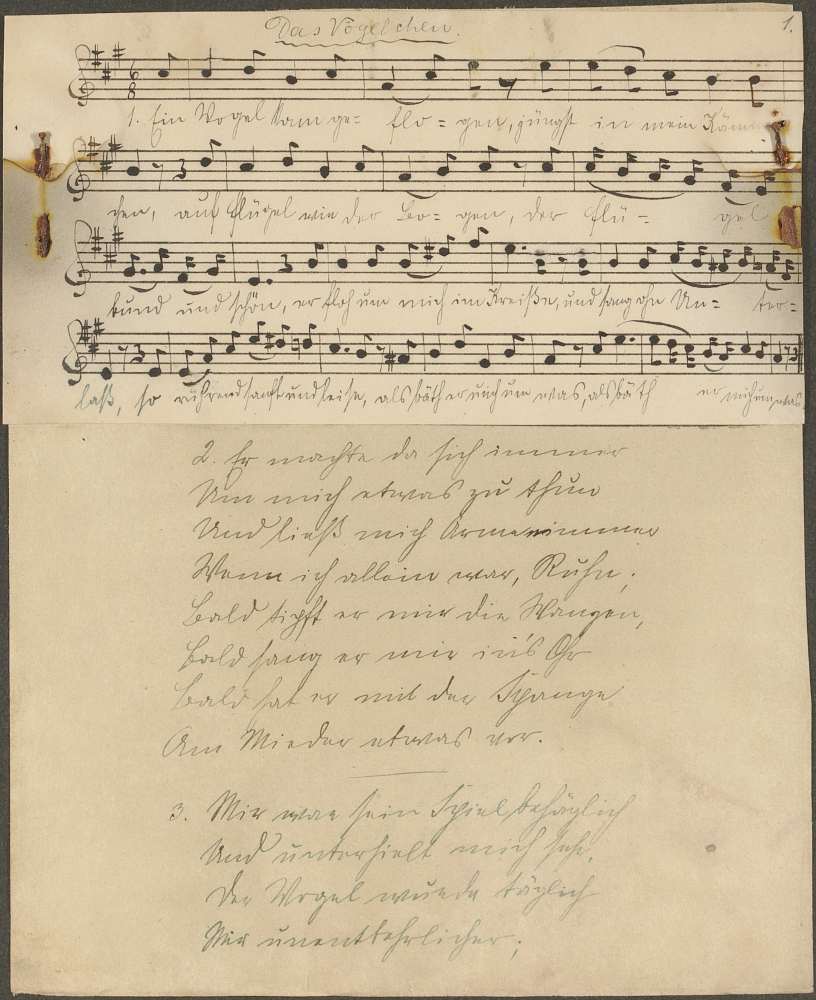 Das Vögelchen.
1.
1. Ein Vogel kam ge- flo- gen, jüngst in mein Käm-
chen, auf Flügel wie der Bo- gen, der Flü- gel
bund und schön, er floh um mich im Kreiße, und sang ohn Un- ter-
laß, so rührend sanft und leise, als bäth er mich um was, als bäth er mich um was
2. Er machte da sich immer
Um mich etwas zu thun
Und ließ mich Arme nimmer
Wenn ich allein war, Ruhn;
Bald tipft er mir die Wangen,
Bald sang er mir in's Ohr
Bald hat er mit der Spange
Am Mieder etwas vor.
3. Mir war sein Spiel behäglich
Und unterhielt mich sehr,
Der Vogel wurde täglich
Mir unentbehrlicher;